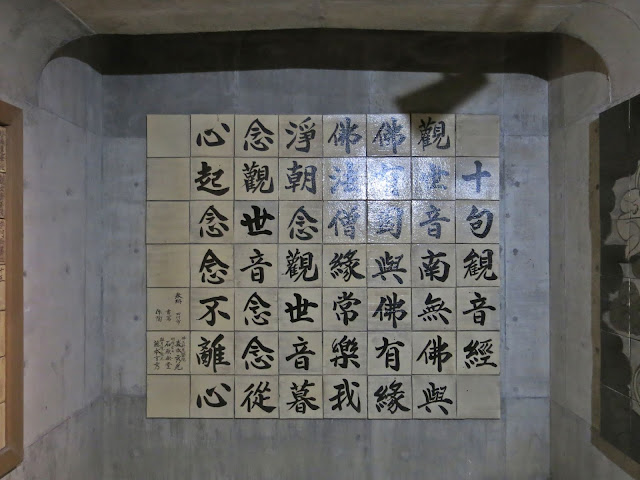 十句觀音經
觀世音南無佛與
佛有因與佛有緣
佛法僧緣常樂我
淨朝念觀世音暮
念觀世音念念從
心起念念不離心